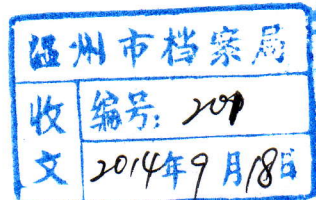 温州市档案局
收文
编号: 201
2014年9月18日